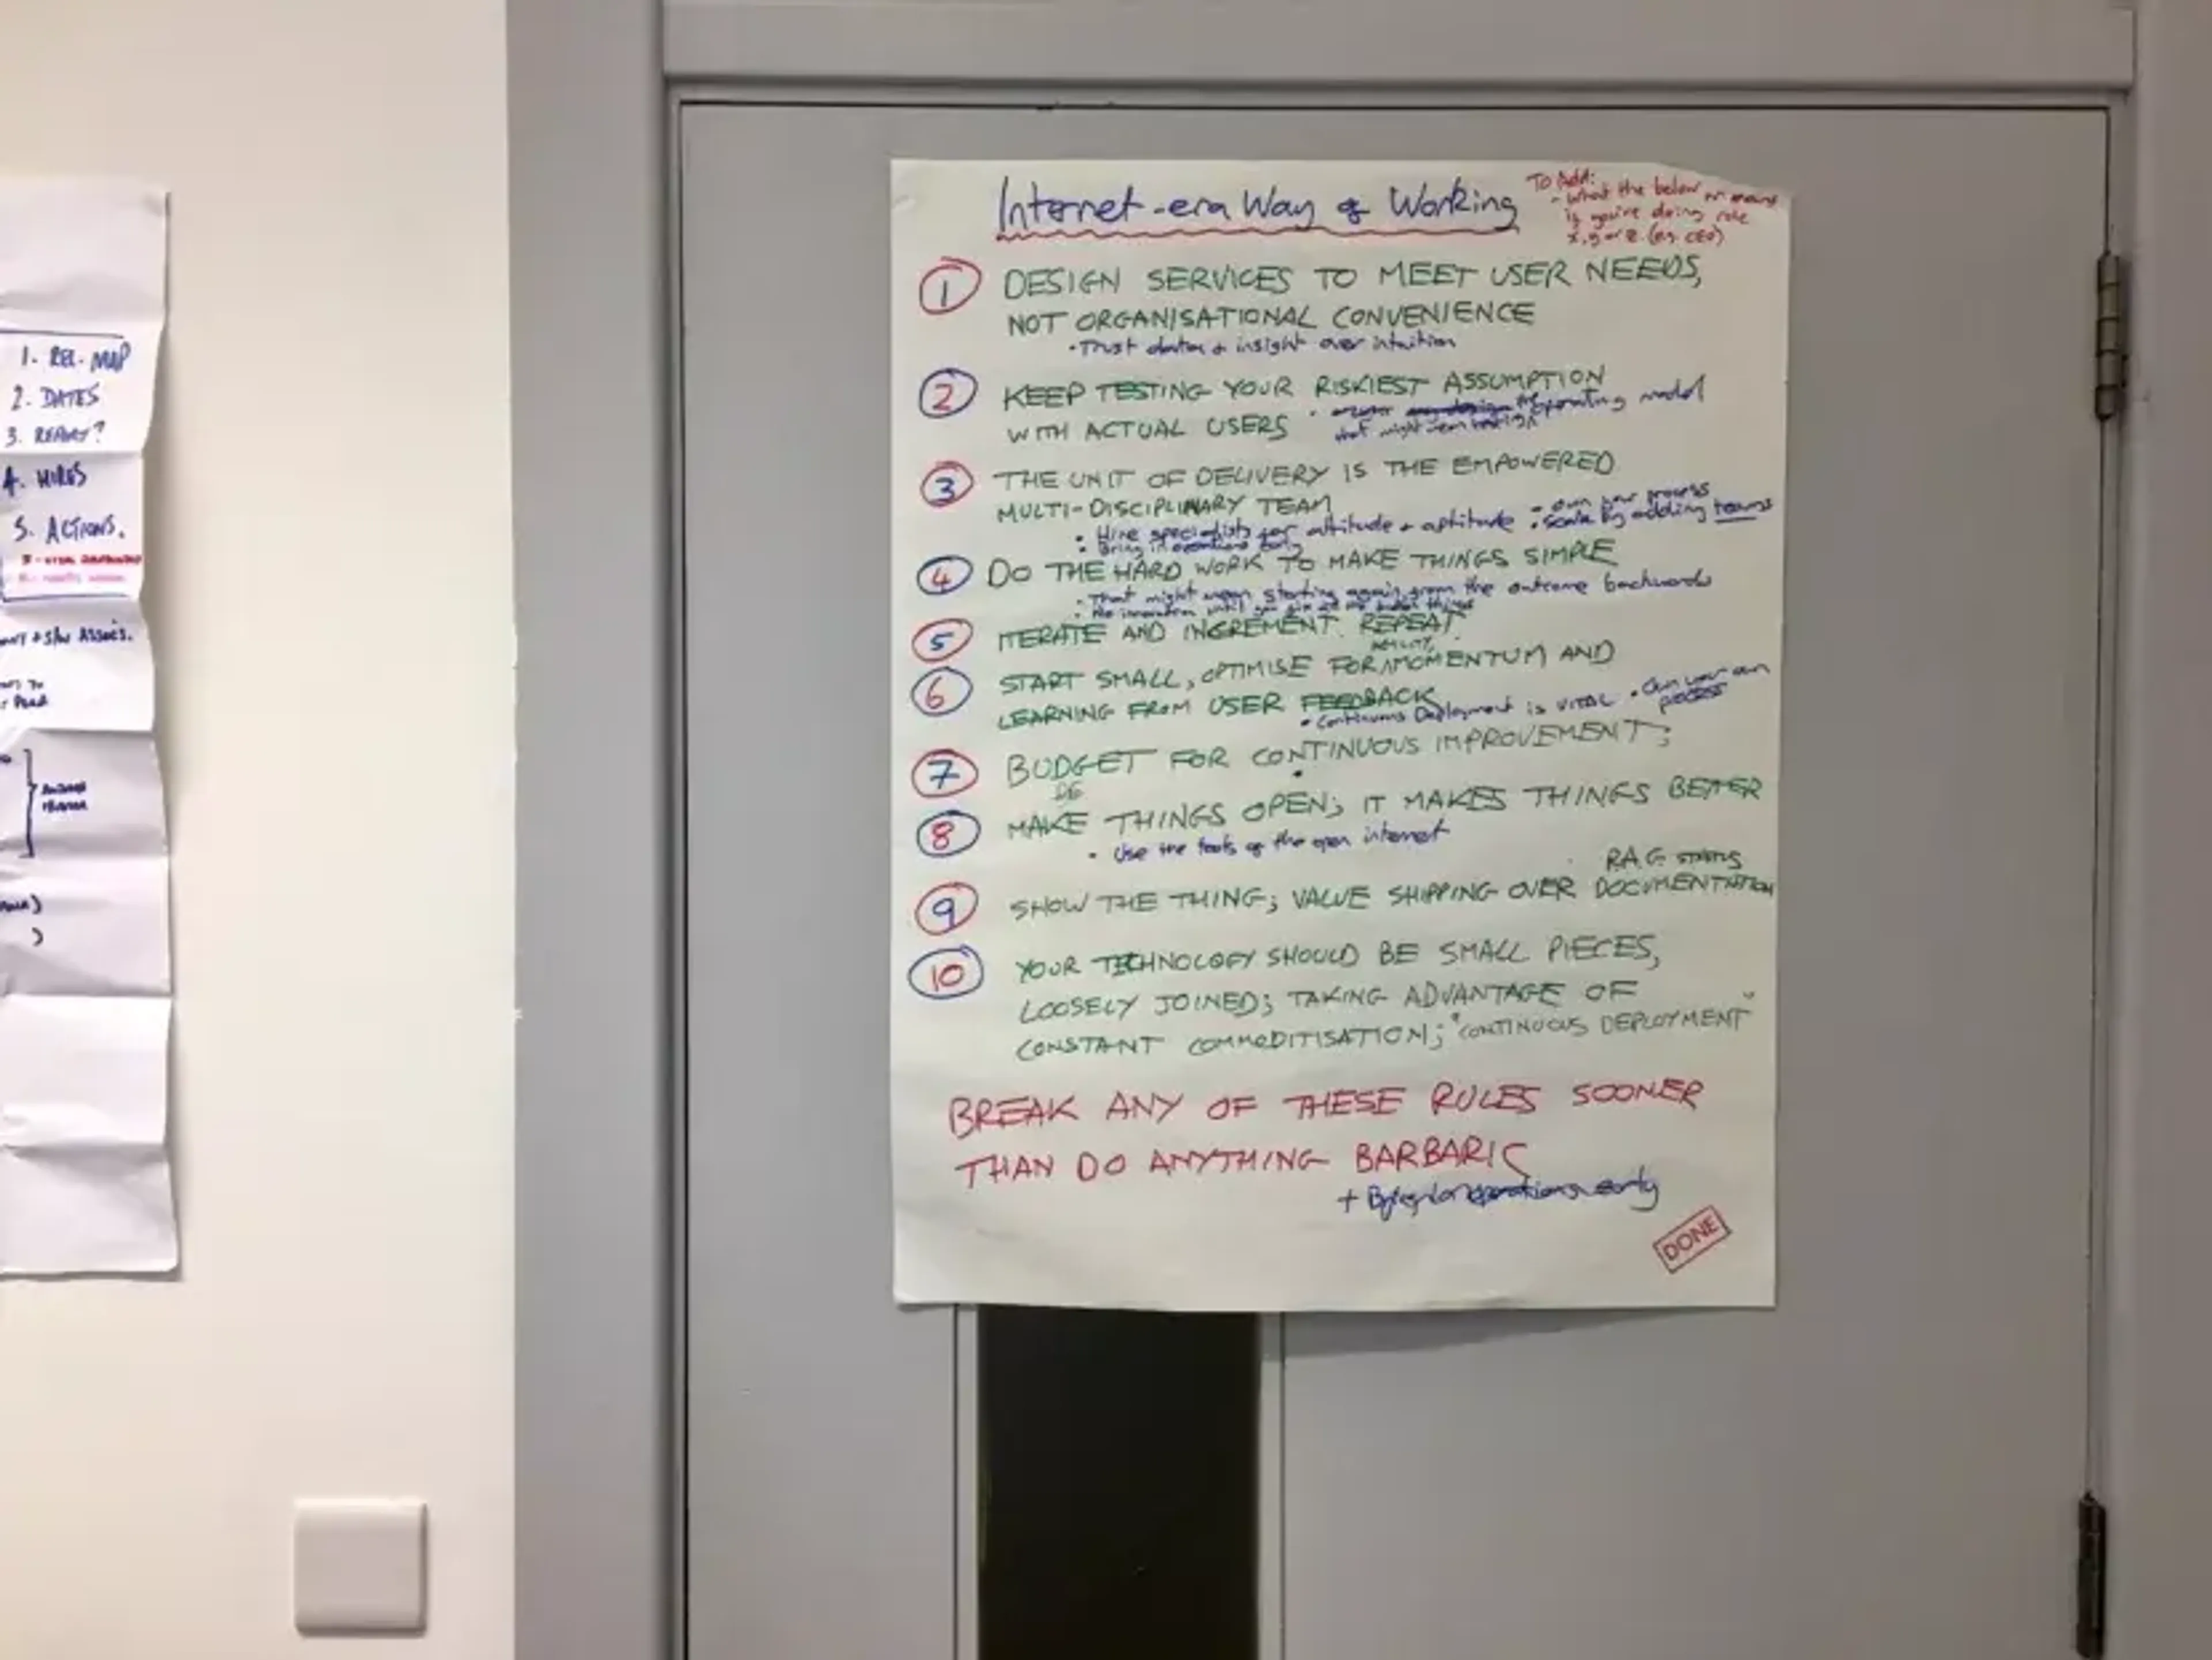 1. REL. MAP
2. DATES
3. REPORT?
4. HIRES
5. ACTIONS.
Internet-era Way of Working
To Add:
- What the below means
if you're doing role
x, y or z. (e.g. CEO)
1 DESIGN SERVICES TO MEET USER NEEDS,
NOT ORGANISATIONAL CONVENIENCE
• Trust data + insight over intuition
2 KEEP TESTING YOUR RISKIEST ASSUMPTION
WITH ACTUAL USERS
operating model
that might
3 THE UNIT OF DELIVERY IS THE EMPOWERED
MULTI-DISCIPLINARY TEAM
- own your process
• Hire specialists for attitude + aptitude • scale by adding teams
• Bring in operations early
4 DO THE HARD WORK TO MAKE THINGS SIMPLE
• That might mean starting again, from the outcome backwards
• No innovation until you
5 ITERATE AND INCREMENT. REPEAT.
AGILITY,
6 START SMALL, OPTIMISE FOR MOMENTUM AND
LEARNING FROM USER FEEDBACK
• Continuous Deployment is VITAL • Own your own
process
7 BUDGET FOR CONTINUOUS IMPROVEMENT;
8 MAKE THINGS OPEN; IT MAKES THINGS BETTER
• Use the tools of the open internet
R.A.G. STATUS
9 SHOW THE THING; VALUE SHIPPING OVER DOCUMENTATION
10 YOUR TECHNOLOGY SHOULD BE SMALL PIECES,
LOOSELY JOINED; TAKING ADVANTAGE OF
CONSTANT COMMODITISATION; "CONTINUOUS DEPLOYMENT"
BREAK ANY OF THESE RULES SOONER
THAN DO ANYTHING BARBARIC
+ Bring in operations early
DONE